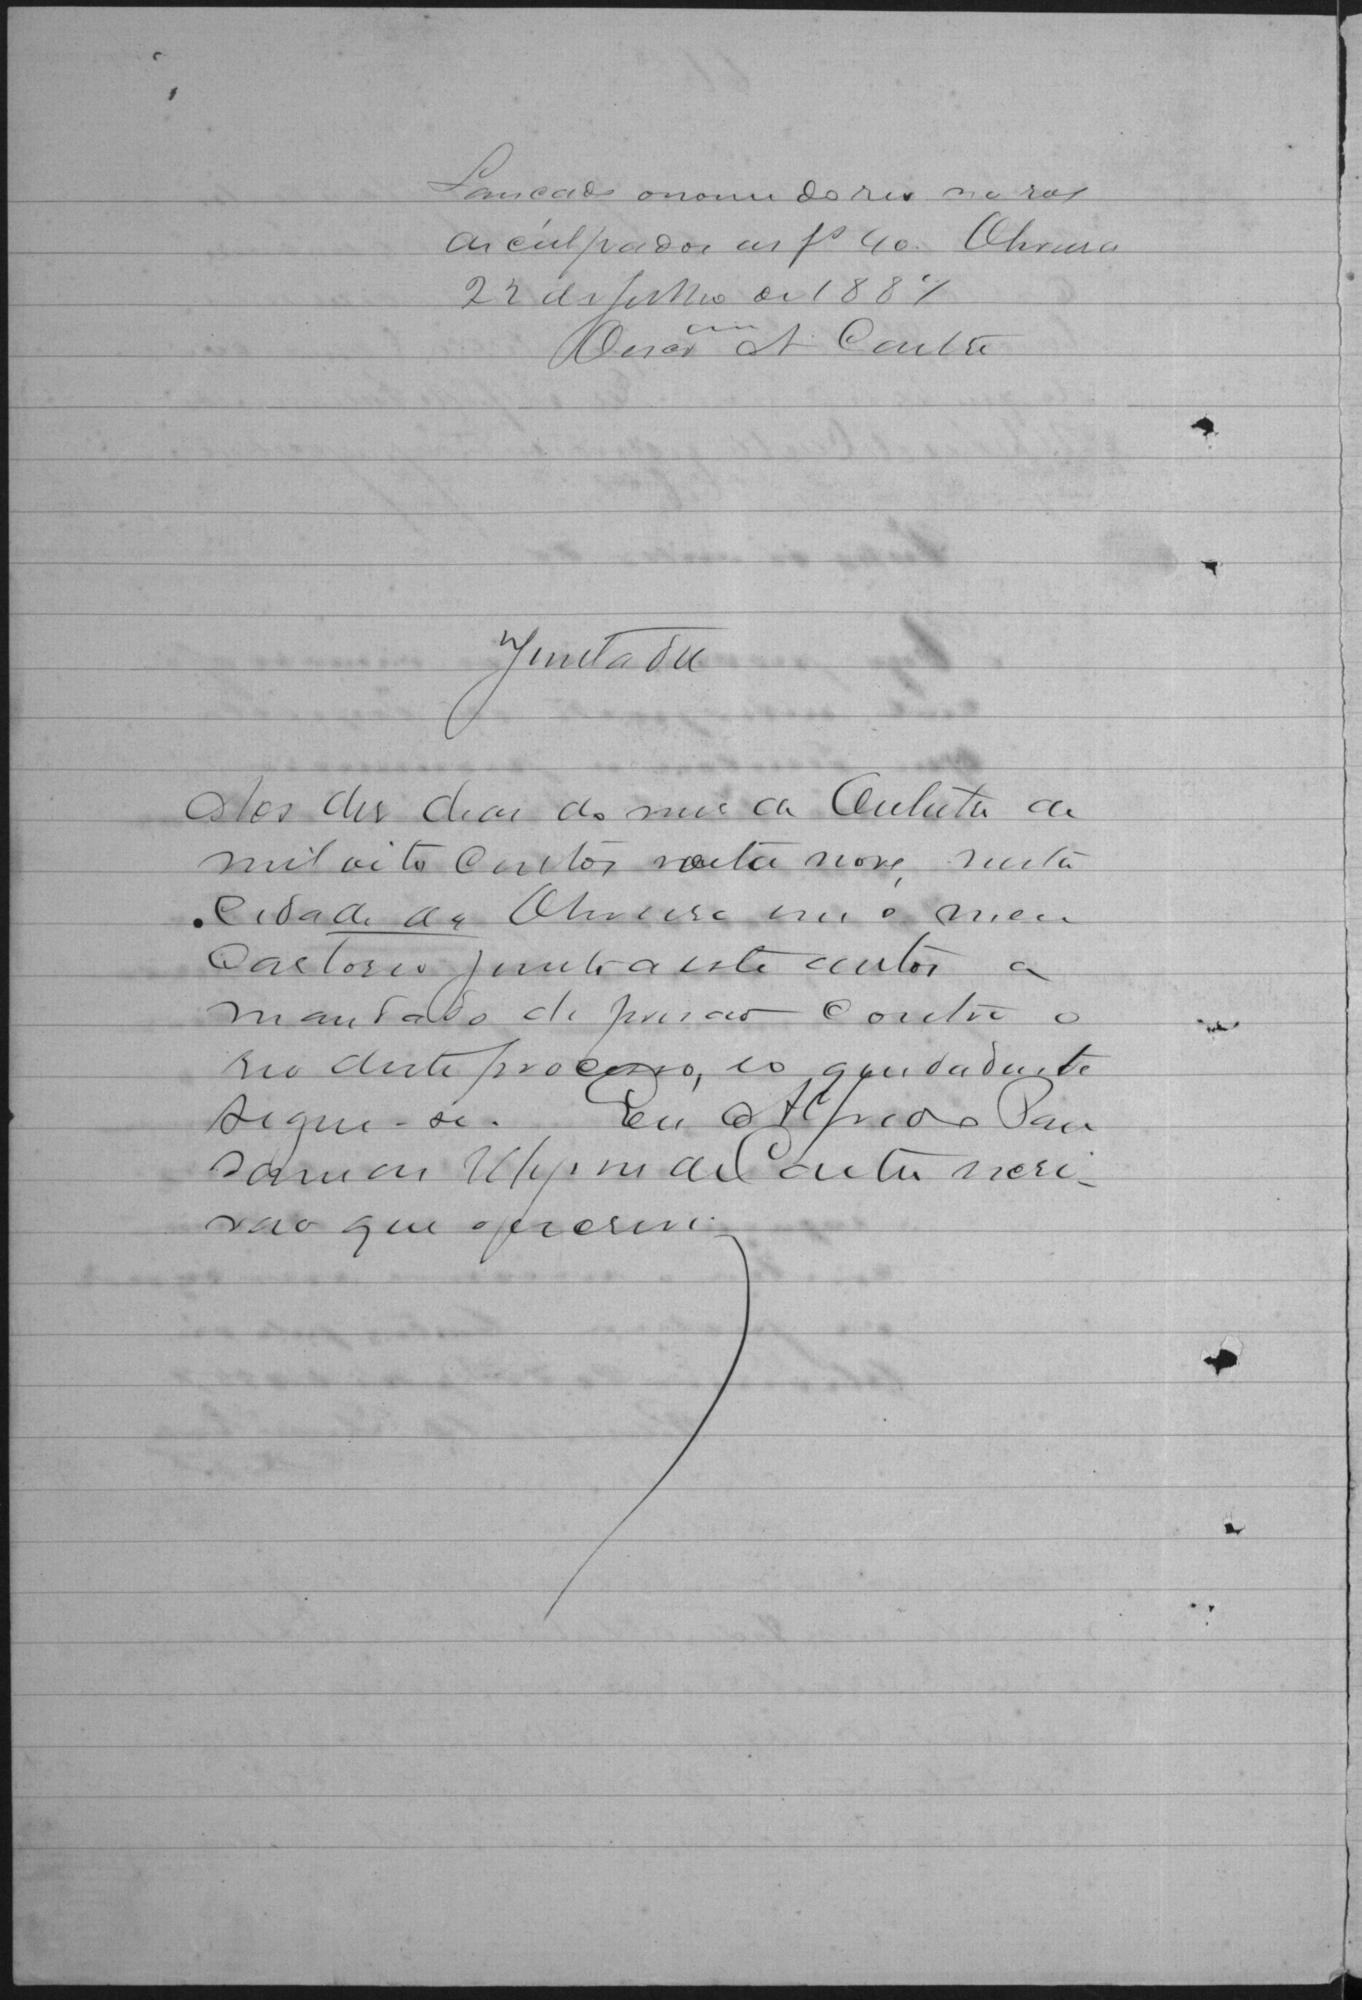 Lançado o nome do reo no rol
de culpados as fs 40. Oliveira
22 de Julho de 1887
O escr.am A Costa
Juntada
Aos dez dias do mes de Outubro de
mil oito centos oitenta nove, nesta
Cidade de Oliveira em o meu
Cartorio junto a este autos o
mandado de prisão contra o
reo deste processo, e o que adiante
segue-se. Eu Alfredo
de Costa escri-
vão que o escrevi.